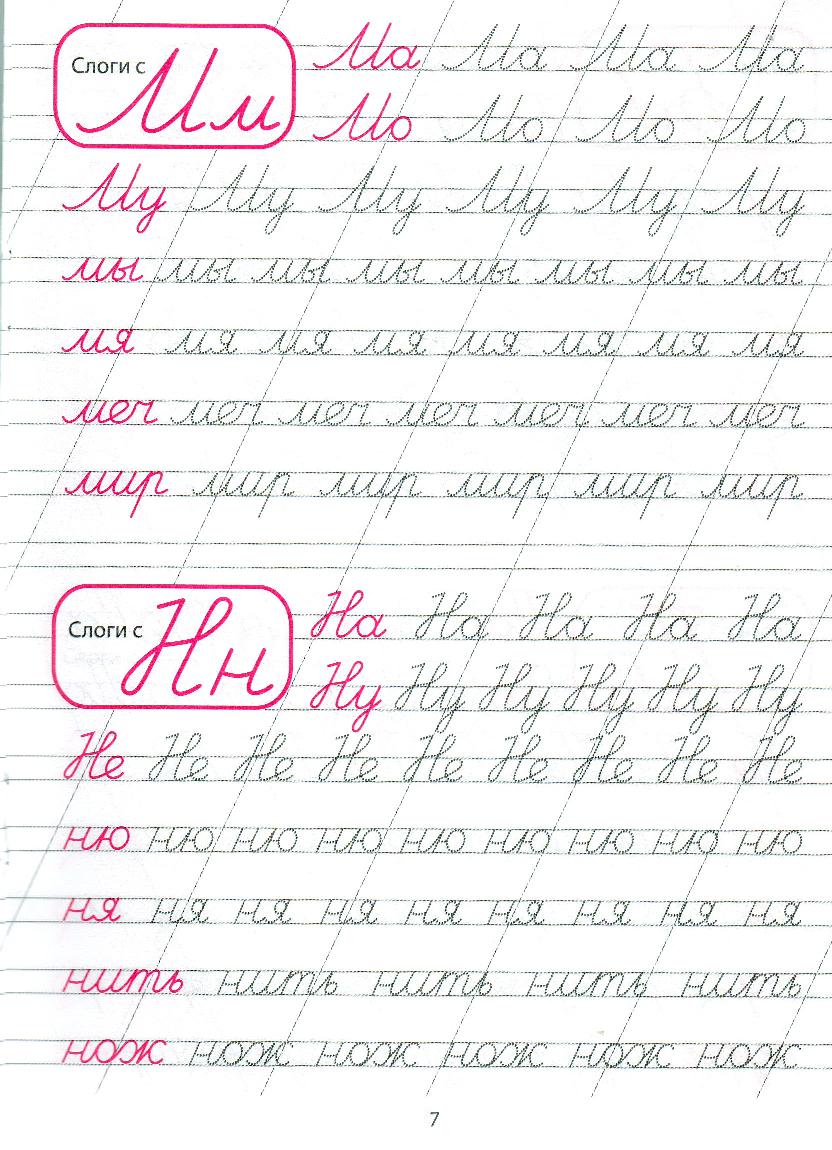 Слоги с Мм
Ма Ма Ма Ма
Мо Мо Мо Мо
Му Му Му Му Му Му
мы мы мы мы мы мы мы мы
мя мя мя мя мя мя мя мя
меч меч меч меч меч меч меч
мир мир мир мир мир мир
Слоги с Нн
На На На На На
Ну Ну Ну Ну Ну Ну
Не Не Не Не Не Не Не Не Не
ню ню ню ню ню ню ню ню ню
ня ня ня ня ня ня ня ня ня
нить нить нить нить нить
нож нож нож нож нож нож
7